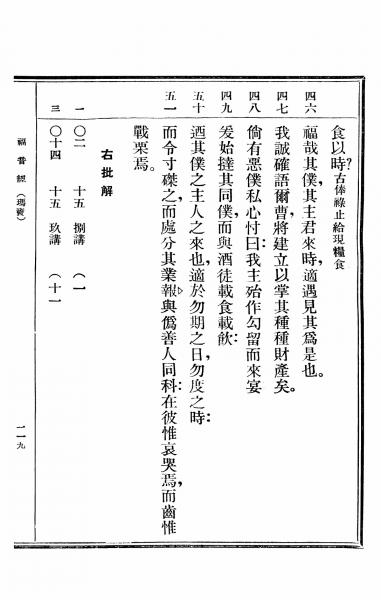 食以時？古俸祿止給現糧食
四六 福哉其僕，其主君來時，適遇見其爲是也。
四七 我誠確語爾曹，將建立以掌其種種財產矣。
四八 倘有惡僕私心忖曰：我主殆作勾留而來宴
四九 爰始撻其同僕，而與酒徒載食載飮：
五十 迺其僕之主人之來也，適於勿期之日，勿度之時：
五一 而令寸磔之，而處分其業報，與僞善人同科：在彼惟哀哭焉，而齒惟
戰栗焉。
右批解
一 〇二 十五 捌講 （一）
三 〇十四 十五 玖講 （十一）
福音經（瑪竇）
一一九